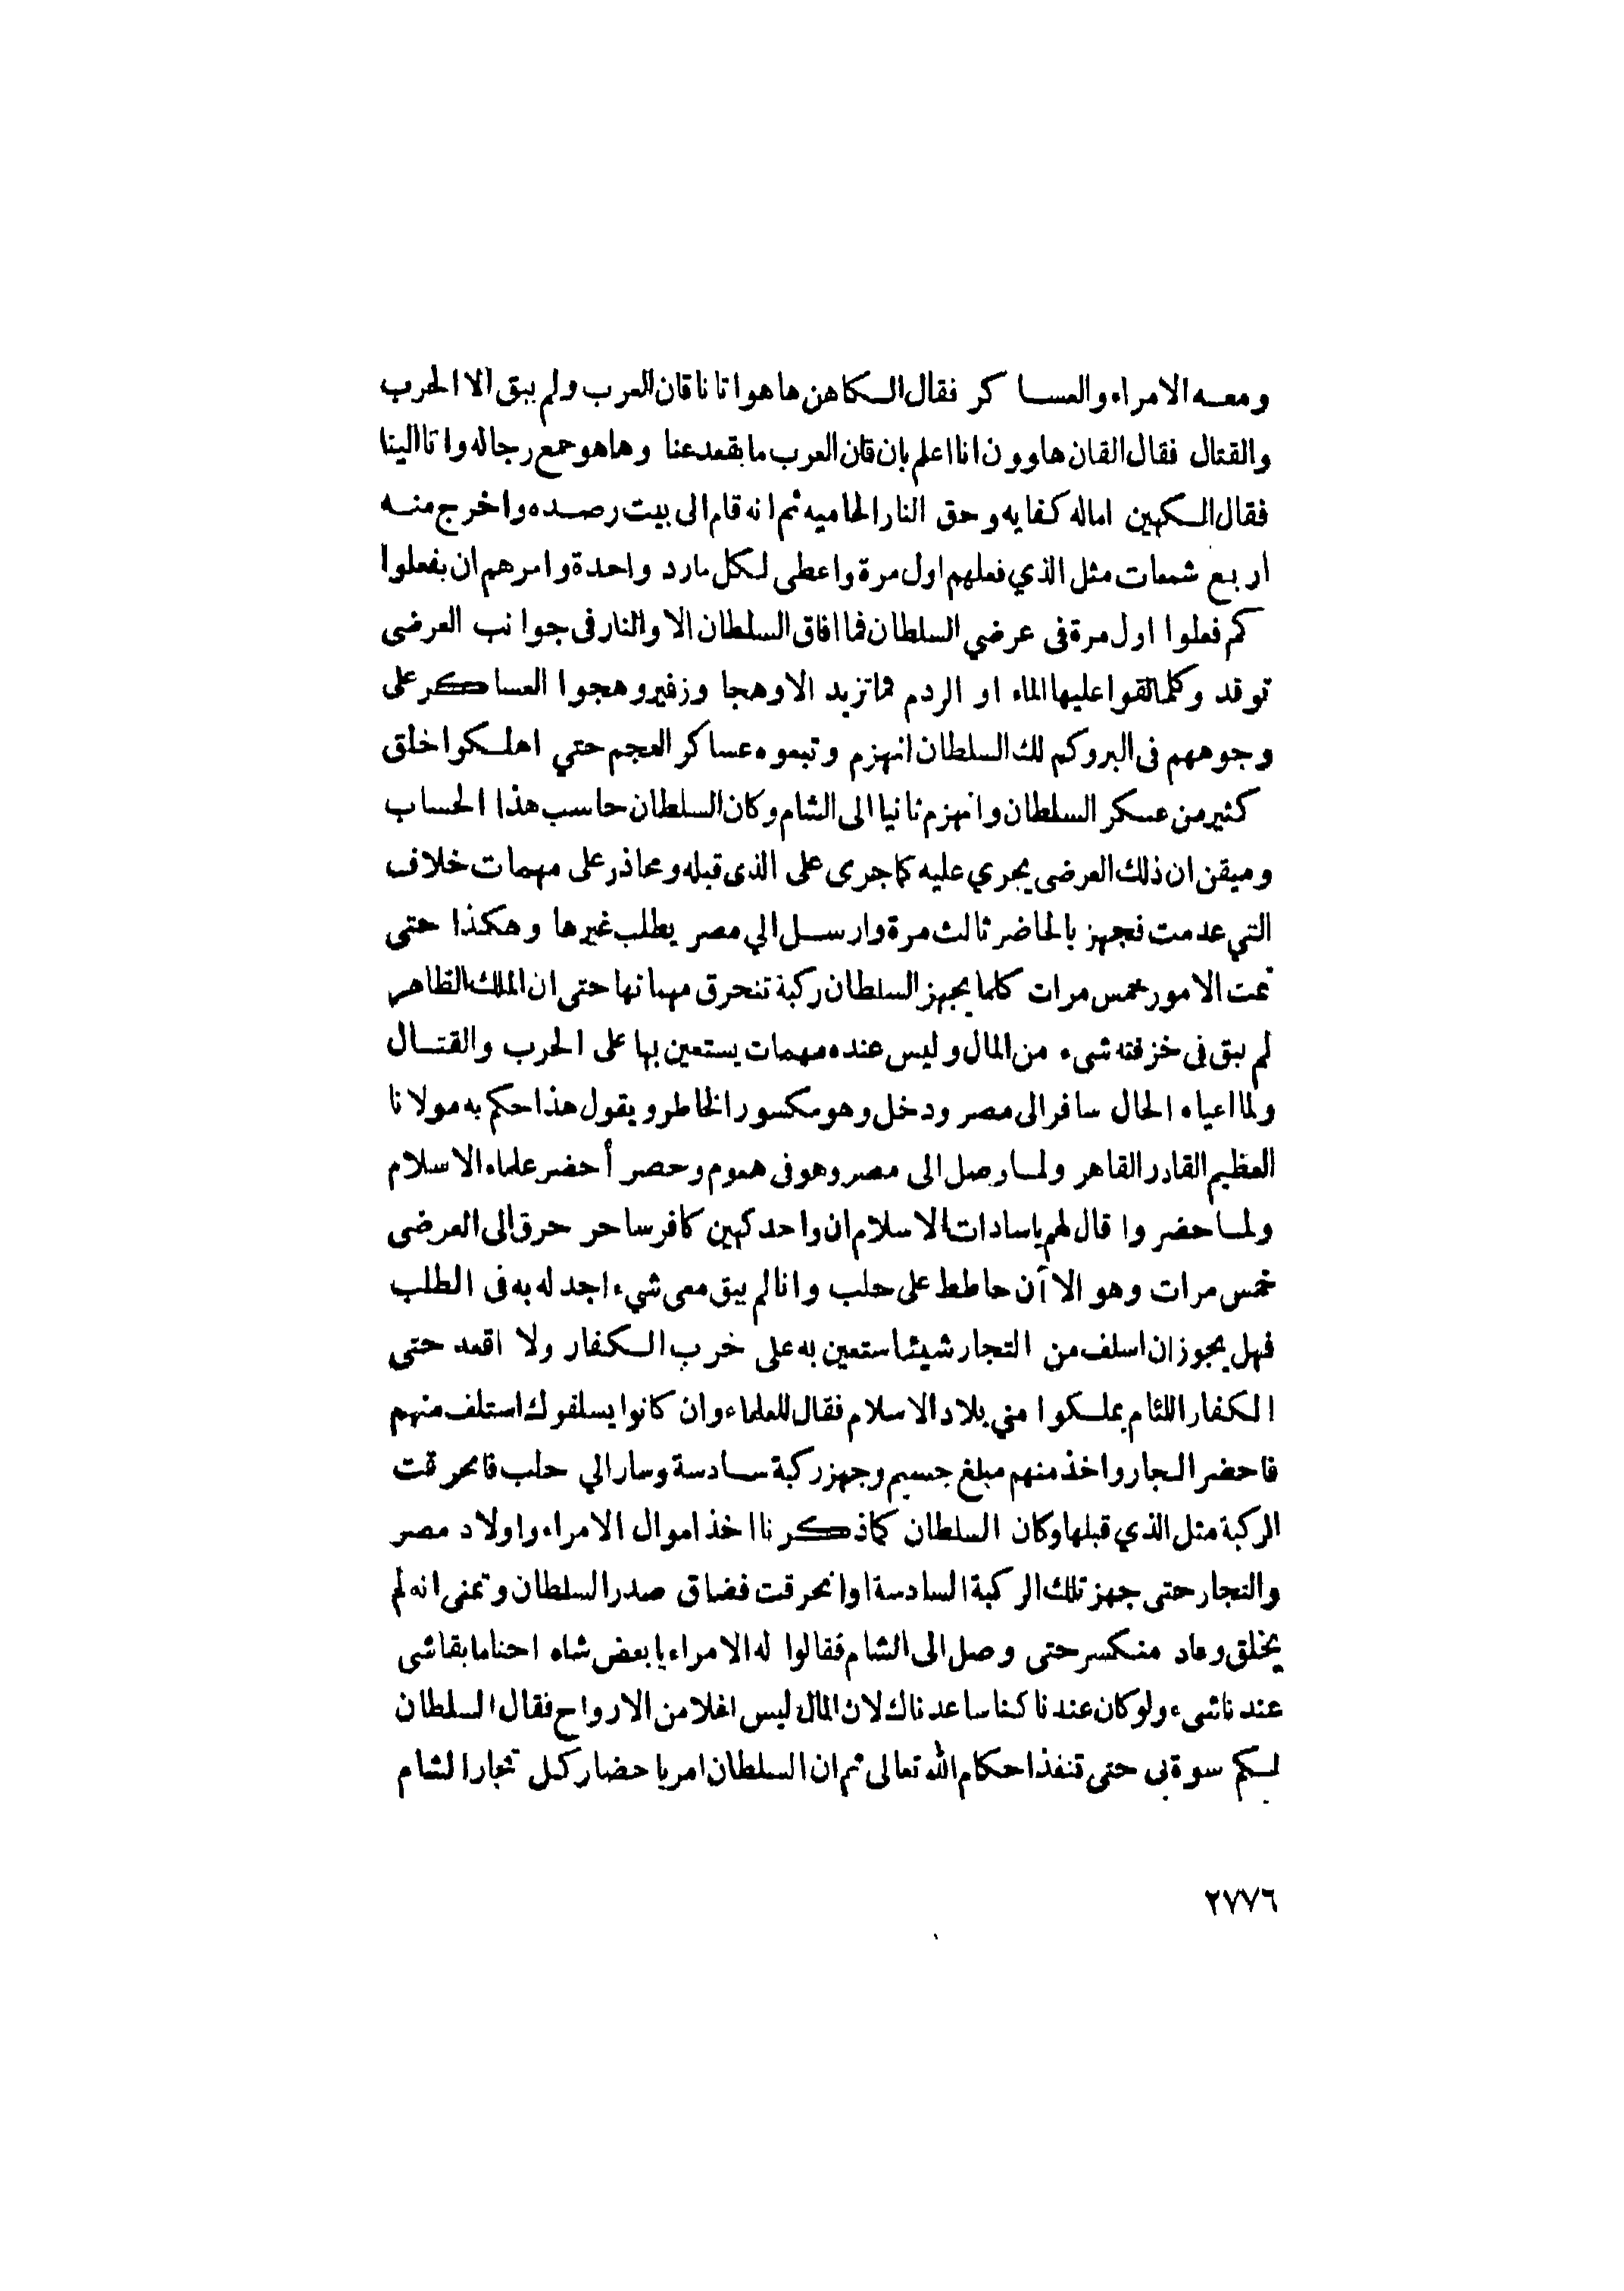 ومعه الامراء والعساكر فقال الكاهن ها هو اتانا قان العرب ولم يبق الا الحرب
والقتال فقال القان هاوون انا اعلم بان قان العرب ما يقعد عنا وها هو جمع رجاله واتا الينا
فقال الكهين اماله كفايه وحق النار الحاميه ثم انه قام الى بيت رصده واخرج منه
اربع شمعات مثل الذي فعلهم اول مرة واعطى لكل مارد واحدة وامرهم ان يفعلوا
كم فعلوا اول مرة فى عرضي السلطان فما افاق السلطان الا والنار فى جوانب العرضى
توقد وكلما القوا عليها الماء او الردم فما تزيد الا وهجا وزفير وهجوا العساكر على
وجوههم فى البر وكم لك السلطان انهزم وتبعوه عساكر العجم حتي اهلكوا خلق
كثير من عسكر السلطان وانهزم ثانيا الى الشام وكان السلطان حاسب هذا الحساب
وميقن ان ذلك العرضى يجري عليه كما جرى على الذى قبله ومحاذر على مهمات خلاف
التي عدمت فجهز بالحاضر ثالث مرة وارسل الي مصر يطلب غيرها وهكذا حتى
تمت الامور خمس مرات كلما يجهز السلطان ركبة تنحرق مهماتها حتى ان الملك الظاهر
لم يبق فى خزنته شىء من المال وليس عنده مهمات يستعين بها على الحرب والقتال
ولما اعياه الحال سافر الى مصر ودخل وهو مكسور الخاطر ويقول هذا حكم به مولانا
العظيم القادر القاهر ولما وصل الى مصر وهو فى هموم وحصر أحضر علماء الاسلام
ولما حضروا قال لهم ياسادات الاسلام ان واحد كهين كافر ساحر حرق لى العرضى
خمس مرات وهو الاآن حاطط على حلب وانا لم يبق معى شيء اجد له به فى الطلب
فهل يجوز ان اسلف من التجار شيئا ستعين به على خرب الكفار ولا اقعد حتى
الكفار اللئام يملكوا مني بلاد الاسلام فقال للعلماء وان كانوا يسلفوك استلف منهم
فاحضر التجار واخذ منهم مبلغ جسيم وجهز ركبة سادسة وسار الي حلب فانحرقت
الركبة مثل الذي قبلها وكان السلطان كما ذكرنا اخذ اموال الامراء واولاد مصر
والتجار حتى جهز تلك الركبة السادسة اوانحرقت فضاق صدر السلطان وتمنى انه لم
يخلق وعاد منكسر حتى وصل الى الشام فقالوا له الامراء يا بعض شاه احنا ما بقاشى
عندنا شىء ولو كان عندنا كنا ساعدناك لان المال ليس اغلا من الارواح فقال السلطان
لكم سوة بى حتى تنفذ احكام الله تعالى ثم ان السلطان امر باحضار كل تجار الشام
٢٧٧٦